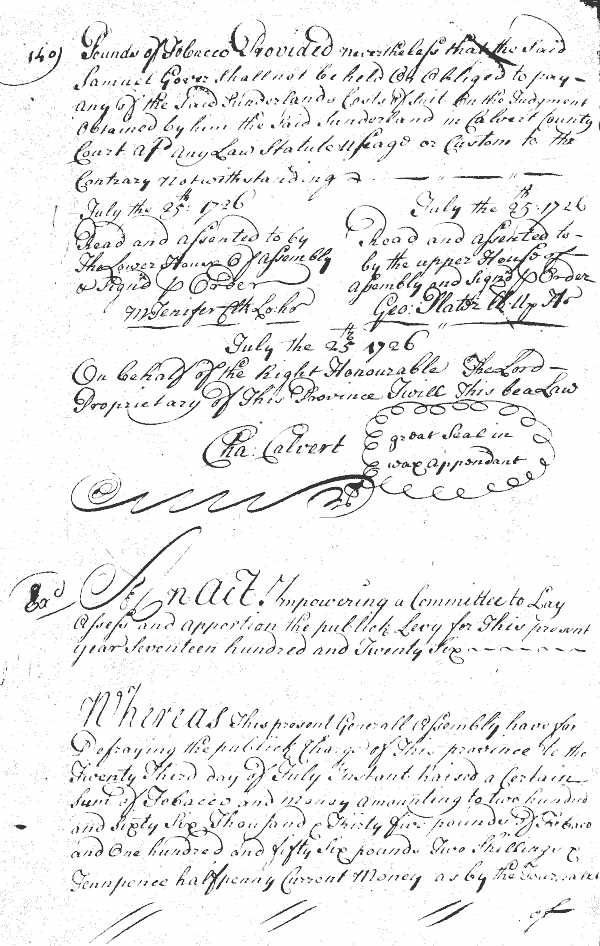 140) Pounds of Tobacco Provided nevertheless that the said
Samuel Gover shall not be held or Obliged to pay
any of the said Sunderlands Costs of suit on the Judgment
Obtained by him the said Sunderland in Calvert County
Court afd any Law Statute usage or Custom to the
Contrary notwithstanding
July the 25th 1726
Read and assented to by
The Lower House of Assembly
& Signd p Order
M Jenifer Clk Lo: ho
July the 25th 1726
Read and assented to
by the upper House of
assembly and signd p Order
Geo: Plater Cl: Up Ho
July the 25th 1726
On behalf of the Right Honourable The Lord
Proprietary of This Province I will This be a Law
Cha: Calvert
great Seal in
wax appendant
An Act Impowering a Committee to Lay
Assess and apportion the publick Levy for This present
year Seventeen hundred and Twenty Six
Whereas This present Generall Assembly have for
Defraying the publick Charge of This province to the
Twenty Third day of July Instant raised a Certain
sum of Tobacco and money amounting to two hundred
and sixty Six Thousand & Thirty five pounds of Tobaco
and One hundred and fifty Six pounds Two Shillings &
Tennpence halfpenny Current Money as by the Journal
of